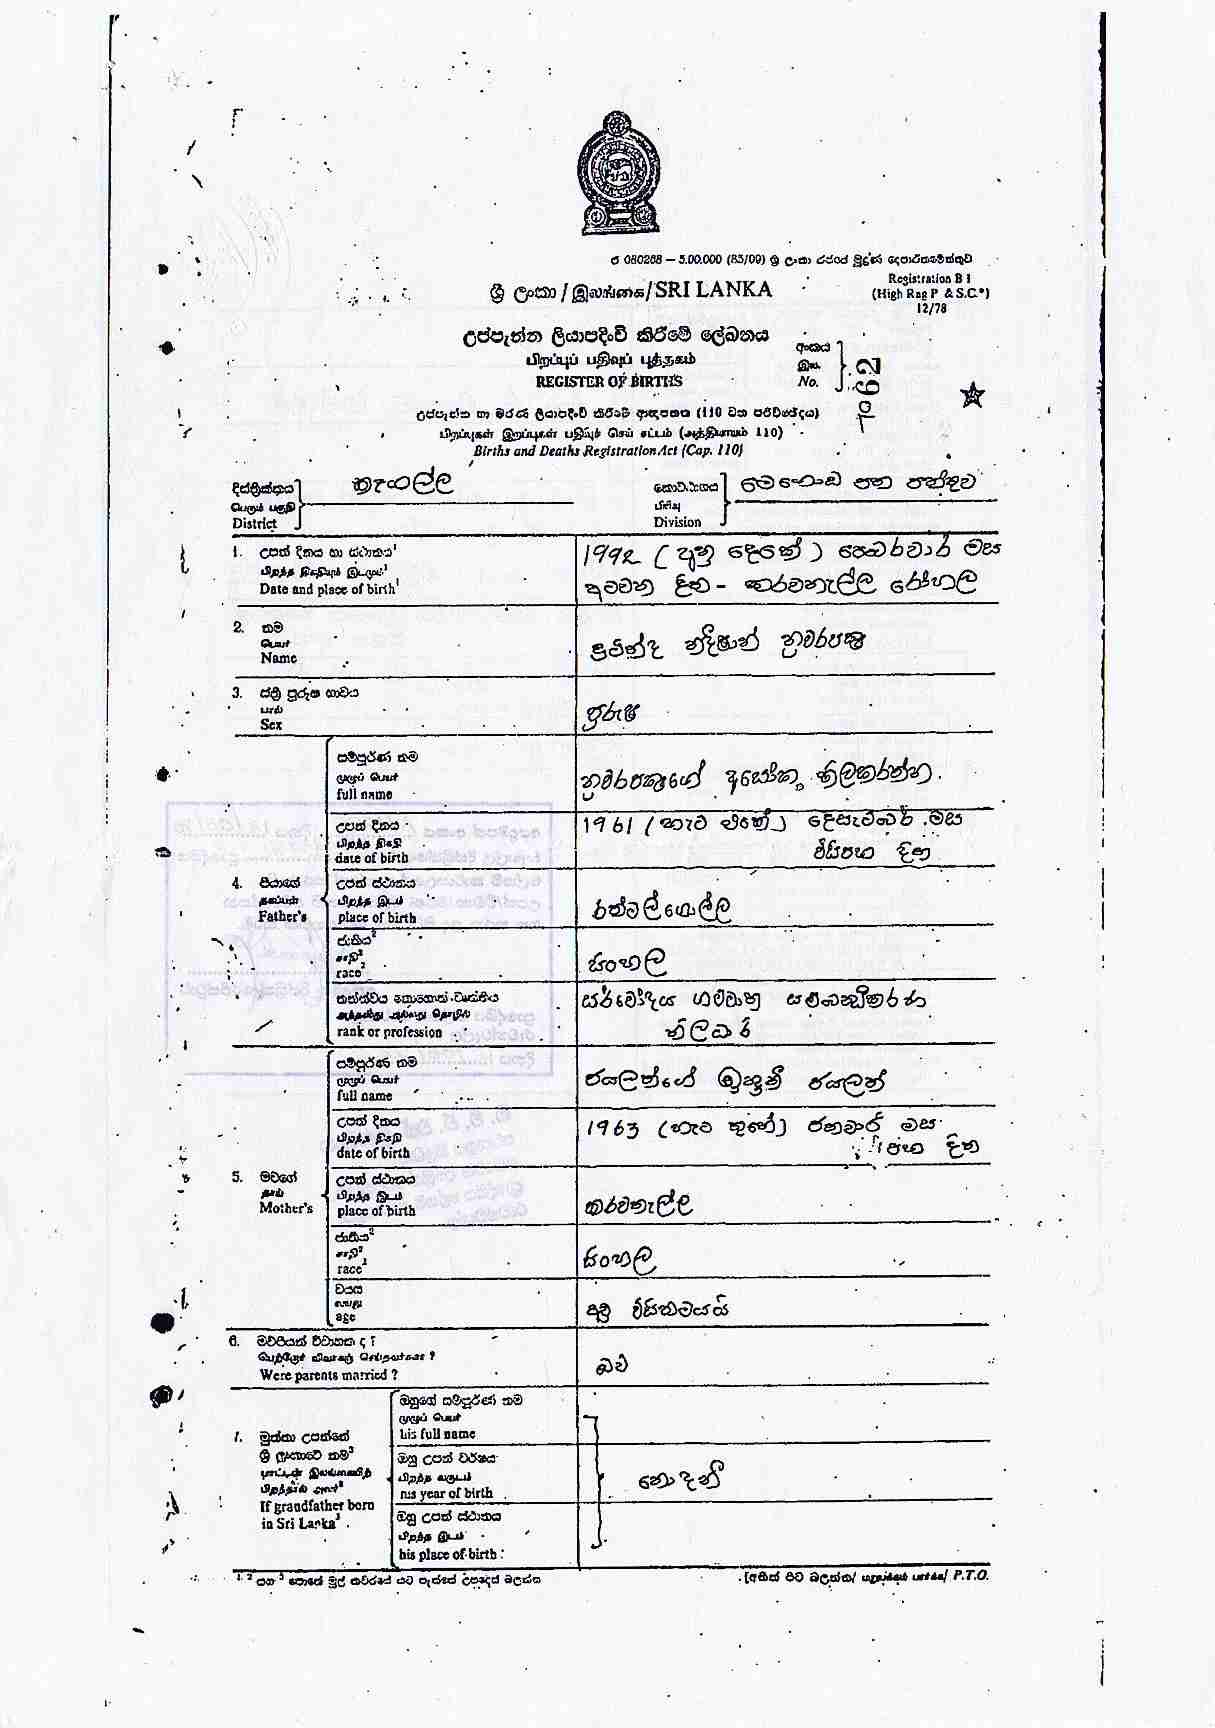 ජ 080268 – 5,00,000 (85/09) ශ්‍රී ලංකා රජයේ මුද්‍රණ දෙපාර්තමේන්තුව
Registration B 1
(High Rag P & S.C.*)
12/78
ශ්‍රී ලංකා / இலங்கை / SRI LANKA
උප්පැන්න ලියාපදිංචි කිරීමේ ලේඛනය
பிறப்புப் பதிவுப் புத்தகம்
REGISTER OF BIRTHS
අංකය
இல.
No.
7062
උප්පැන්න හා මරණ ලියාපදිංචි කිරීමේ ආඥාපනත (110 වන පරිච්ඡේදය)
பிறப்புகள் இறப்புகள் பதிவுச் செய் சட்டம் (அத்தியாயம் 110)
Births and Deaths Registration Act (Cap. 110)
දිස්ත්‍රික්කය
District
කෑගල්ල
කොට්ඨාශය
பிரிவு
Division
පන පත්තුව
1. උපන් දිනය හා ස්ථානය¹
பிறந்த திகதியும் இடமும்¹
Date and place of birth¹
1992 (අනූ දෙකේ) පෙබරවාරි මස
අටවන දින - කරවනැල්ල රෝහල
2. නම
பெயர்
Name
නදීෂාන් අමරපක්ෂ
3. ස්ත්‍රී පුරුෂ භාවය
பால்
Sex
පුරුෂ
4. පියාගේ
தகப்பன்
Father's
සම්පූර්ණ නම
முழுப் பெயர்
full name
අසෝක තිලකරත්න.
උපන් දිනය
பிறந்த திகதி
date of birth
1961 (හැට එකේ) දෙසැම්බර් මස
විසිපහ දින
උපන් ස්ථානය
பிறந்த இடம்
place of birth
රත්මල්ගොල්ල
ජාතිය²
சாதி²
race²
සිංහල
තත්ත්වය හෝ රක්ෂාව
rank or profession
සර්වෝදය ගම්මාන සම්බන්ධීකරණ
නිලධාරී
5. මවගේ
தாய்
Mother's
සම්පූර්ණ නම
முழுப் பெயர்
full name
ජයලත්ගේ ජයලත්
උපන් දිනය
பிறந்த திகதி
date of birth
1963 (හැට තුනේ) ජනවාරි මස
පහ දින
උපන් ස්ථානය
பிறந்த இடம்
place of birth
කරවනැල්ල
ජාතිය²
சாதி²
race²
සිංහල
වයස
வயது
age
අවු විසිනමයයි
6. මව්පියන් විවාහකද ?
பெற்றோர் விவாகஞ் செய்தவர்களா ?
Were parents married ?
ඔව්
7. මුත්තා උපන්නේ
ශ්‍රී ලංකාවේ නම්³
பாட்டன் இலங்கையிற்
பிறந்தால்
If grandfather born
in Sri Lanka³
ඔහුගේ සම්පූර්ණ නම
முழுப் பெயர்
his full name
ඔහු උපන් වර්ෂය
பிறந்த வருடம்
his year of birth
ඔහු උපන් ස්ථානය
பிறந்த இடம்
his place of birth
නොදනී
[අනිත් පිට බලන්න/ மறுபக்கம் பார்க்க/ P.T.O.